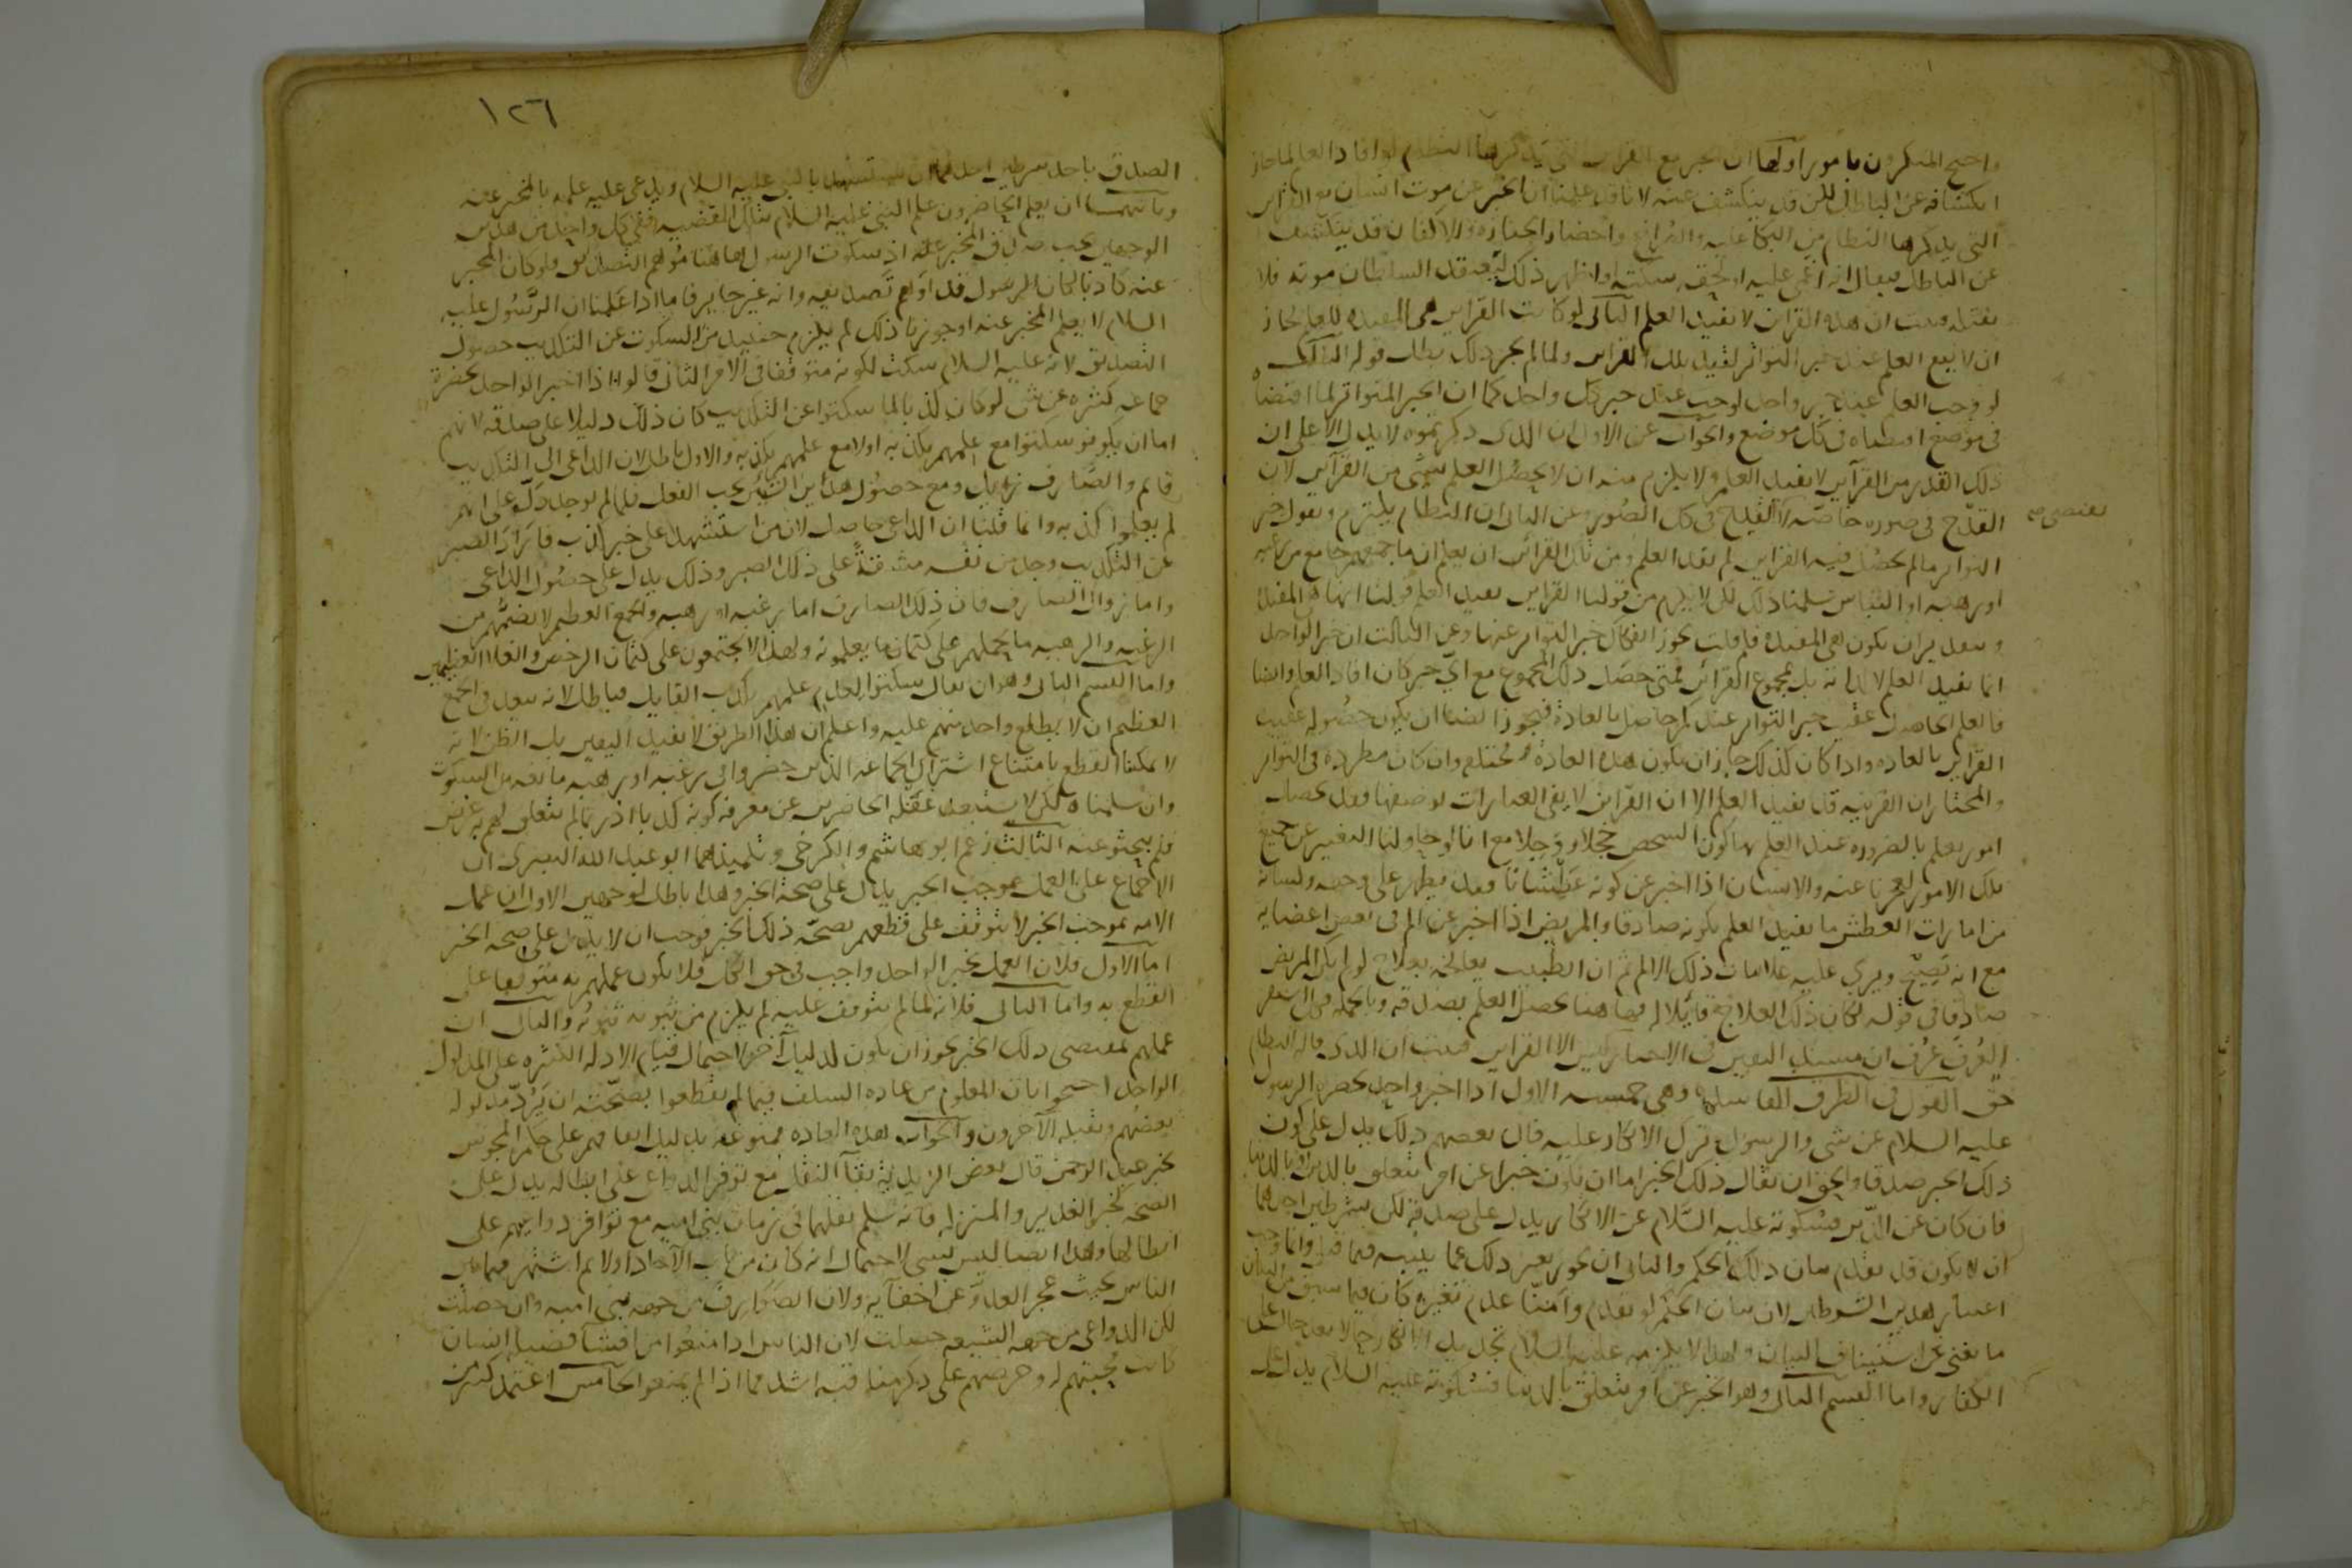 واحتج المنكرون بامور اولها ان الخبر مع القراين التي يذكرها النظام لو افاد العلم لما جاز
انكشافه عن الباطل لكن قد ينكشف عنه لانا قد علمنا ان الخبر عن موت انسان مع القراين
التي يذكرها النظام من البكا عليه والصراخ واحضار الجنازة والاكفان قد ينكشف
عن الباطل فيقال انه اغمي عليه او لحقه سكتة او اظهر ذلك ليعتقد السلطان موته فلا
يقتله فثبت ان هذه القراين لا تفيد العلم الثاني لو كانت القراين هي المفيدة للعلم لجاز
ان لا يقع العلم عند خبر التواتر لفقد تلك القراين ولما لم يجز ذلك بطل قوله الثالث
لو وجب العلم عند خبر واحد لوجب عند خبر كل واحد كما ان الخبر المتواتر لما اقتضاه
في موضع اقتضاه في كل موضع والجواب عن الاول ان الذي ذكرتموه لا يدل الا على ان
ذلك القدر من القراين لا يفيد العلم ولا يلزم منه ان لا يحصل العلم بشي من القراين لان
القدح في صورة خاصة لا القدح في كل الصور وعن الثاني ان النظام يلتزم ويقول خبر
يقتضي صح
التواتر ما لم يحصل فيه القراين لم يفد العلم ومن تلك القراين ان يعلم ان ما جمعهم جامع من رغبة
او رهبة او التباس سلمنا ذلك لكن لا يلزم من قولنا القراين تفيد العلم قولنا انها هي المفيدة
وبتقدير ان تكون هي المفيدة فلم قلت يجوز انفكاك خبر التواتر عنها وعن الثالث ان خبر الواحد
انما يفيد العلم لا لذاته بل بمجموع القراين فمتى حصل ذلك المجموع مع اي خبر كان افاد العلم وايضا
فالعلم الحاصل عقيب خبر التواتر عندكم حاصل بالعادة فيجوز ايضا ان يكون حصوله عقيب
القراين بالعادة واذا كان كذلك جاز ان يكون هذه العادة مختلفة وان كان مطردة في التواتر
والمختار ان القرينة قد تفيد العلم الا ان القراين لا يفي العبارات بوصفها فقد تحصل
امور يعلم بالضرورة عند العلم بها كون الشخص خجلا ووجلا مع انا لو حاولنا التعبير عن جميع
تلك الامور لعجزنا عنه والانسان اذا اخبر عن كونه عطشانا فقد يظهر على وجهه ولسانه
من امارات العطش ما يفيد العلم بكونه صادقا والمريض اذا اخبر عن الم في بعض اعضايه
مع انه يصيح ويرى عليه علامات ذلك الالم ثم ان الطبيب يعالجه بعلاج لو لم يكن المريض
صادقا في قوله لكان ذلك العلاج قاتلا له فهاهنا يحصل العلم بصدقه وبالجملة فمن استقر
العرف عرف ان مستند اليقين في الاخبار ليس الا القراين فثبت ان الذي قاله النظام
حق القول في الطرق الفاسدة وهي خمسة الاول اذا اخبر واحد بحضرة الرسول
عليه السلام عن شي والرسول ترك الانكار عليه قال بعضهم ذلك يدل على كون
ذلك الخبر صدقا والحق ان يقال ذلك الخبر اما ان يكون خبرا عن امر يتعلق بالدين او بالدنيا
فان كان عن الدين فسكوته عليه السلام عن الانكار يدل على صدقه لكن بشرطين احدهما
ان لا يكون قد تقدم بيان ذلك الحكم والثاني ان يجوز تغير ذلك عما بينه فيما قبل وانما وجب
اعتبار هذين الشرطين لان بيان الحكم لو تقدم وامنا عدم تغيره كان فيما سبق من البيان
ما يغني عن استيناف البيان ولهذا لا يلزمه عليه السلام تجديد الانكار حالا بعد حال على
الكفار واما القسم الثاني وهو الخبر عن امر يتعلق بالدنيا فسكوته عليه السلام يدل على
١٢٦
الصدق باحد شرطين احدهما ان يستشهد بالنبي عليه السلام ويدعي عليه علمه بالمخبر عنه
وثانيهما ان يعلم الحاضرون علم النبي عليه السلام بتلك القضية ففي كل واحد من هذين
الوجهين يجب صدق المخبر عنه اذ سكوت الرسول هاهنا موهم التصديق فلو كان المخبر
عنه كاذبا لكان الرسول قد اوهم تصديقه وانه غير جايز فاما اذا علمنا ان الرسول عليه
السلام لا يعلم المخبر عنه او جوزنا ذلك لم يلزم حينيذ من السكوت عن التكذيب حصول
التصديق لانه عليه السلام سكت لكونه متوقفا في الامر الثاني قالوا اذا اخبر الواحد بحضرة
جماعة كثيرة عن شي لو كان كذبا لما سكتوا عن التكذيب كان ذلك دليلا على صدقه لانهم
اما ان يكونوا سكتوا مع علمهم بكذبه او لا مع علمهم بكذبه والاول باطل لان الداعي الى التكذيب
قايم والصارف زايل ومع حصول هذين الشيئين يجب الفعل فلما لم يوجد دل على انهم
لم يعلموا كذبه وانما قلنا ان الداعي حاصل لان من استشهد على خبر كذب فان اراد الصبر
عن التكذيب وجد من نفسه مشقة على ذلك الصبر وذلك يدل على حصول الداعي
واما زوال الصارف فان ذلك الصارف اما رغبة او رهبة والجمع العظيم لا يضمهم من
الرغبة والرهبة ما يحملهم على كتمان ما يعلمونه ولهذا لا يجتمعون على كتمان الرخص والغلا العظيمين
واما القسم الثاني وهو ان يقال سكتوا لعدم علمهم بكذب القايل فباطل لانه يبعد في الجمع
العظيم ان لا يطلع واحد منهم عليه واعلم ان هذا الطريق لا يفيد اليقين بل الظن لانه
لا يمكننا القطع بامتناع اشتراك الجماعة الذين حضروا في رغبة او رهبة مانعة من السكوت
وان سلمناه لكن لا يستبعد غفلة الحاضرين عن معرفة كونه كذبا اذ ربما لم يتعلق لهم به غرض
فلم يبحثوا عنه الثالث زعم ابو هاشم والكرخي وتلميذهما ابو عبد الله البصري ان
الاجماع على العمل بموجب الخبر يدل على صحة الخبر وهذا باطل لوجهين الاول ان عمل
الامة بموجب الخبر لا يتوقف على قطعهم بصحة ذلك الخبر فوجب ان لا يدل على صحة الخبر
اما الاول فلان العمل بخبر الواحد واجب في حق الكل فلا يكون عملهم به متوقفا على
القطع به واما الثاني فلانه لما لم يتوقف عليه لم يلزم من ثبوته ثبوته والثاني ان
عملهم بمقتضى ذلك الخبر يجوز ان يكون لدليل آخر لاحتمال قيام الادلة الكثيرة على المدلول
الواحد احتجوا بان المعلوم من عادة السلف فيما لم يقطعوا بصحته ان يرد مدلوله
بعضهم ويقبله الآخرون والجواب هذه العادة ممنوعة بدليل اتفاقهم على حكم المجوس
بخبر عبد الرحمن قال بعض الزيدية بقآ النقل مع توفر الدواعي على ابطاله يدل على
الصحة كخبر الغدير والمنزلة فانه سلم نقلهما في زمان بني امية مع توافر دواعيهم على
ابطالها وهذا ايضا ليس بشي لاحتمال انه كان من باب الآحاد اولا ثم اشتهر فيما بين
الناس بحيث عجز العدو عن اخفآيه ولان الصوارف من جهة بني امية وان حصلت
لكن الدواعي من جهة الشيعة حصلت لان الناس اذا منعوا من افشآ فضيلة انسان
كانت محبتهم له وحرصهم على ذكر مناقبه اشد مما اذا لم يمنعوا الخامس اعتمد كثير من